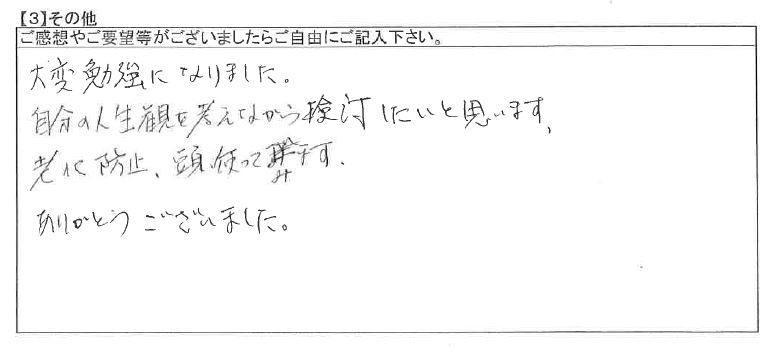 【3】その他
ご感想やご要望等がございましたらご自由にご記入下さい。
大変勉強になりました。
自分の人生観を考えながら検討したいと思います、
老化防止、頭使ってみます.
ありがとうございました。